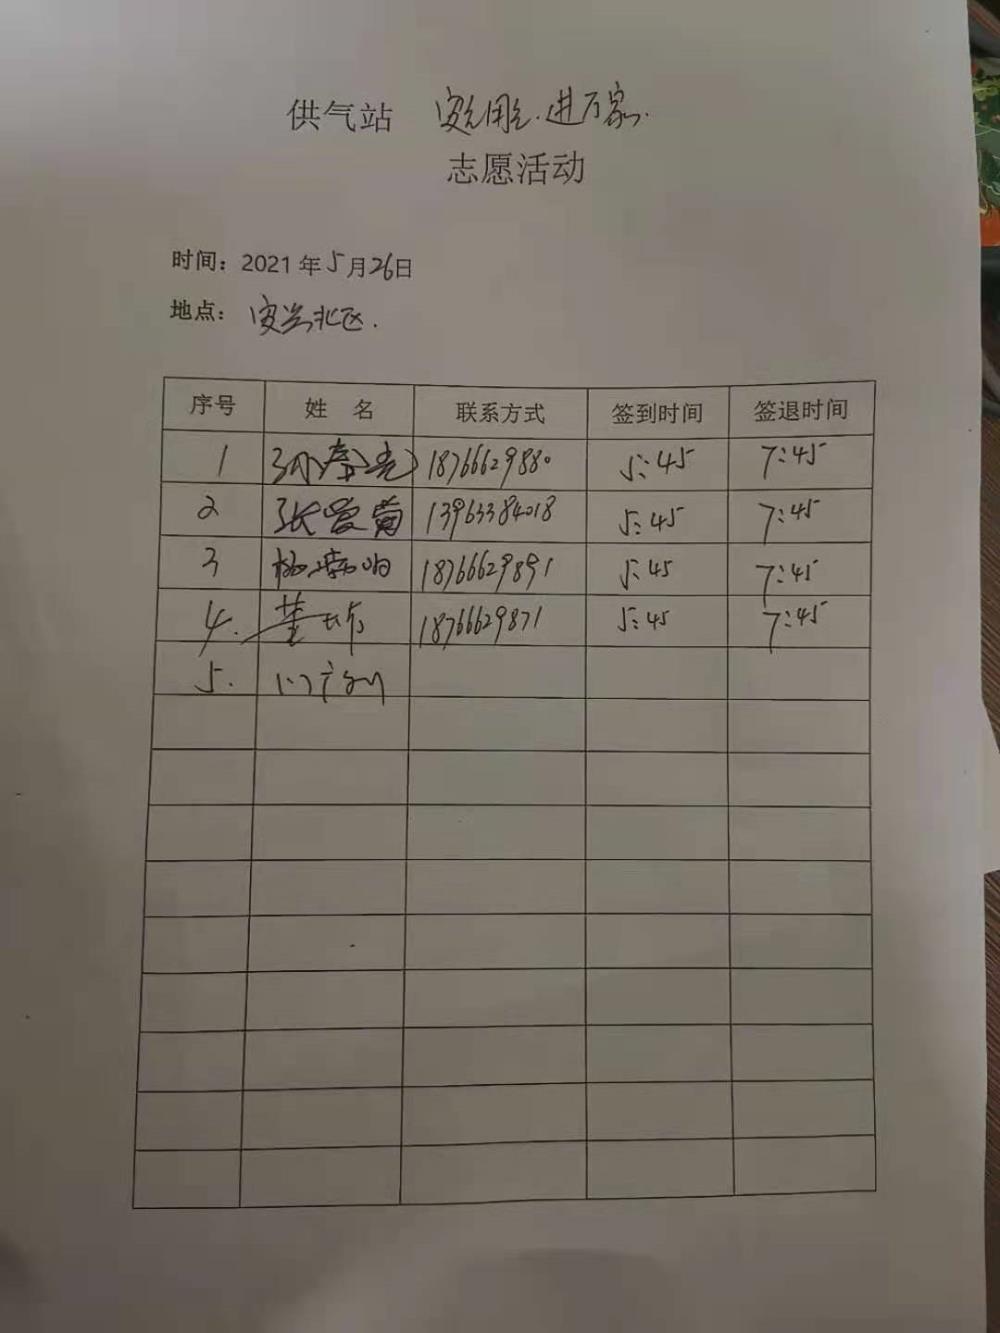 供气站 安全用气.进万家.
志愿活动
时间：2021年5月26日
地点：安兴北区.
序号 姓 名 联系方式 签到时间 签退时间
1 18766629880 5:45 7:45
2 张爱菊 13963384018 5:45 7:45
3 18766629891 5:45 7:45
4. 董 18766629871 5:45 7:45
5.